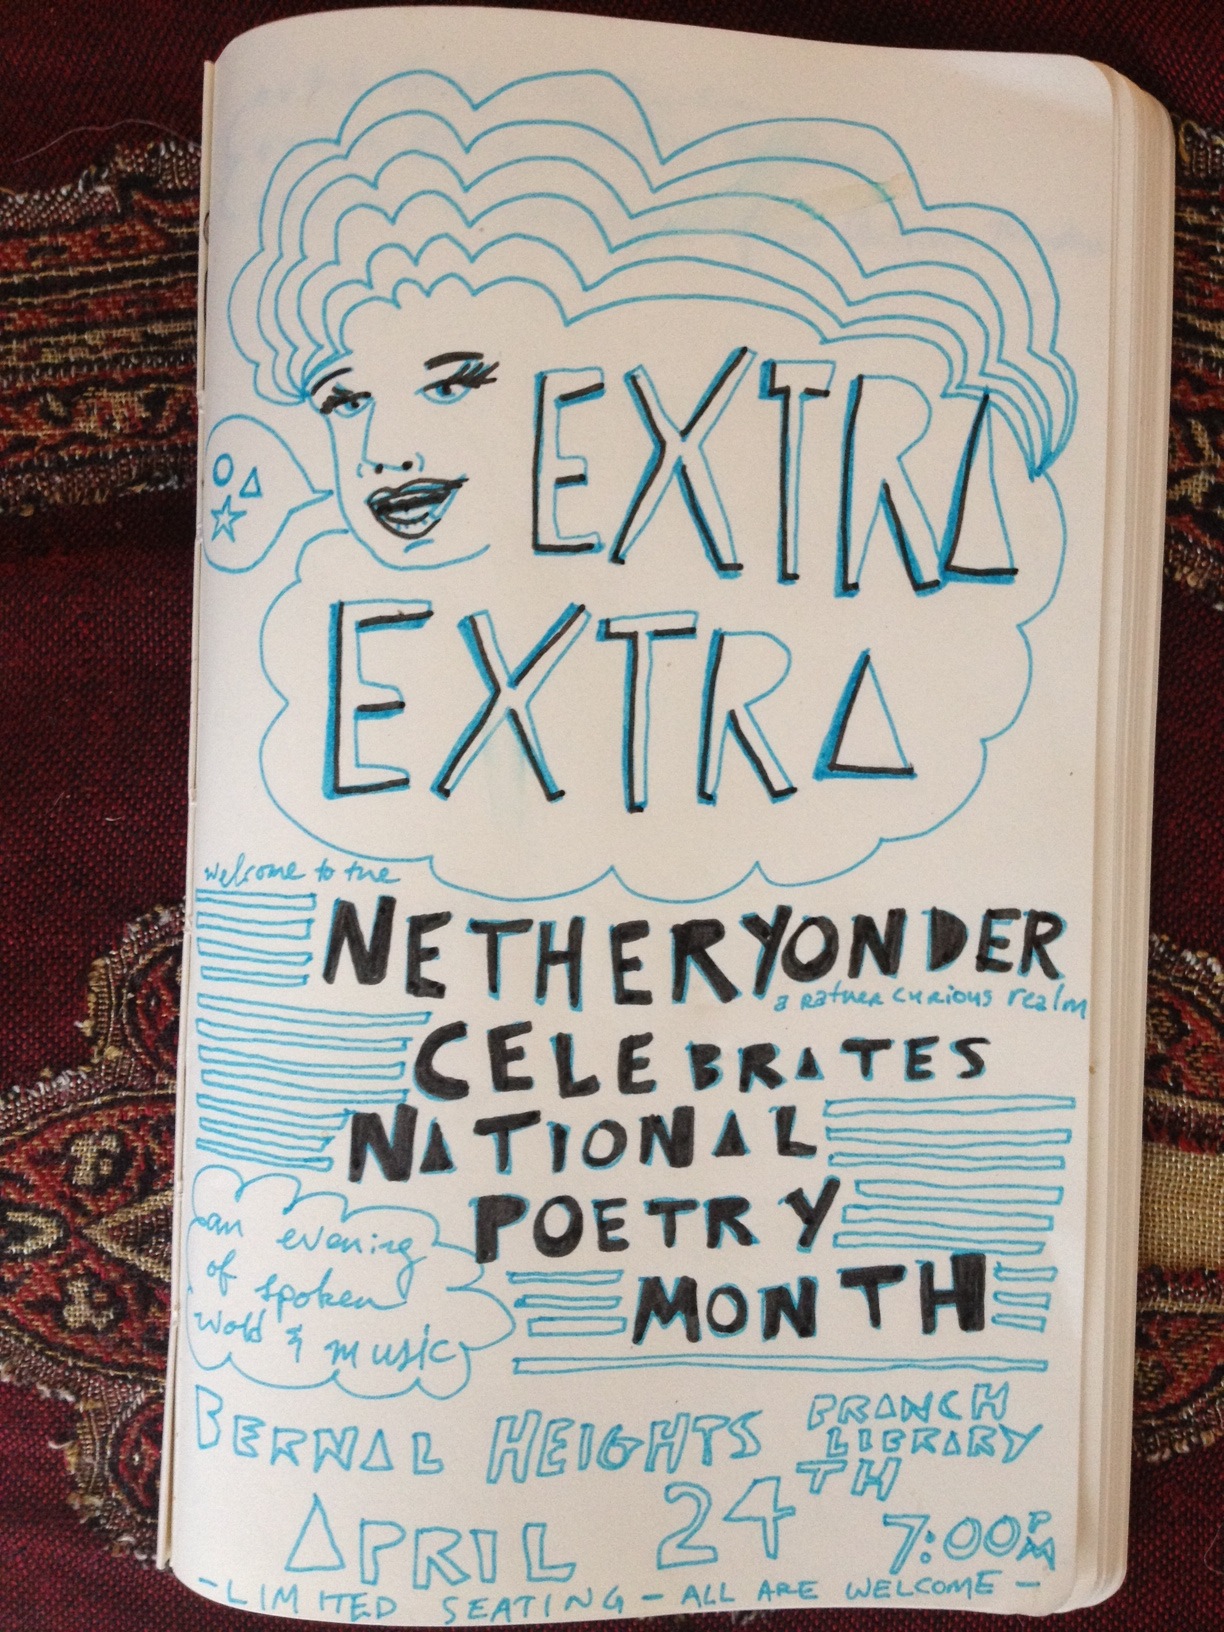 EXTRA
EXTRA
welcome to the
NETHERYONDER
a rather curious realm
CELEBRATES
NATIONAL
POETRY
MONTH
an evening
of spoken
word & music
BERNAL HEIGHTS BRANCH
LIBRARY
APRIL 24TH 7:00PM
-LIMITED SEATING - ALL ARE WELCOME -